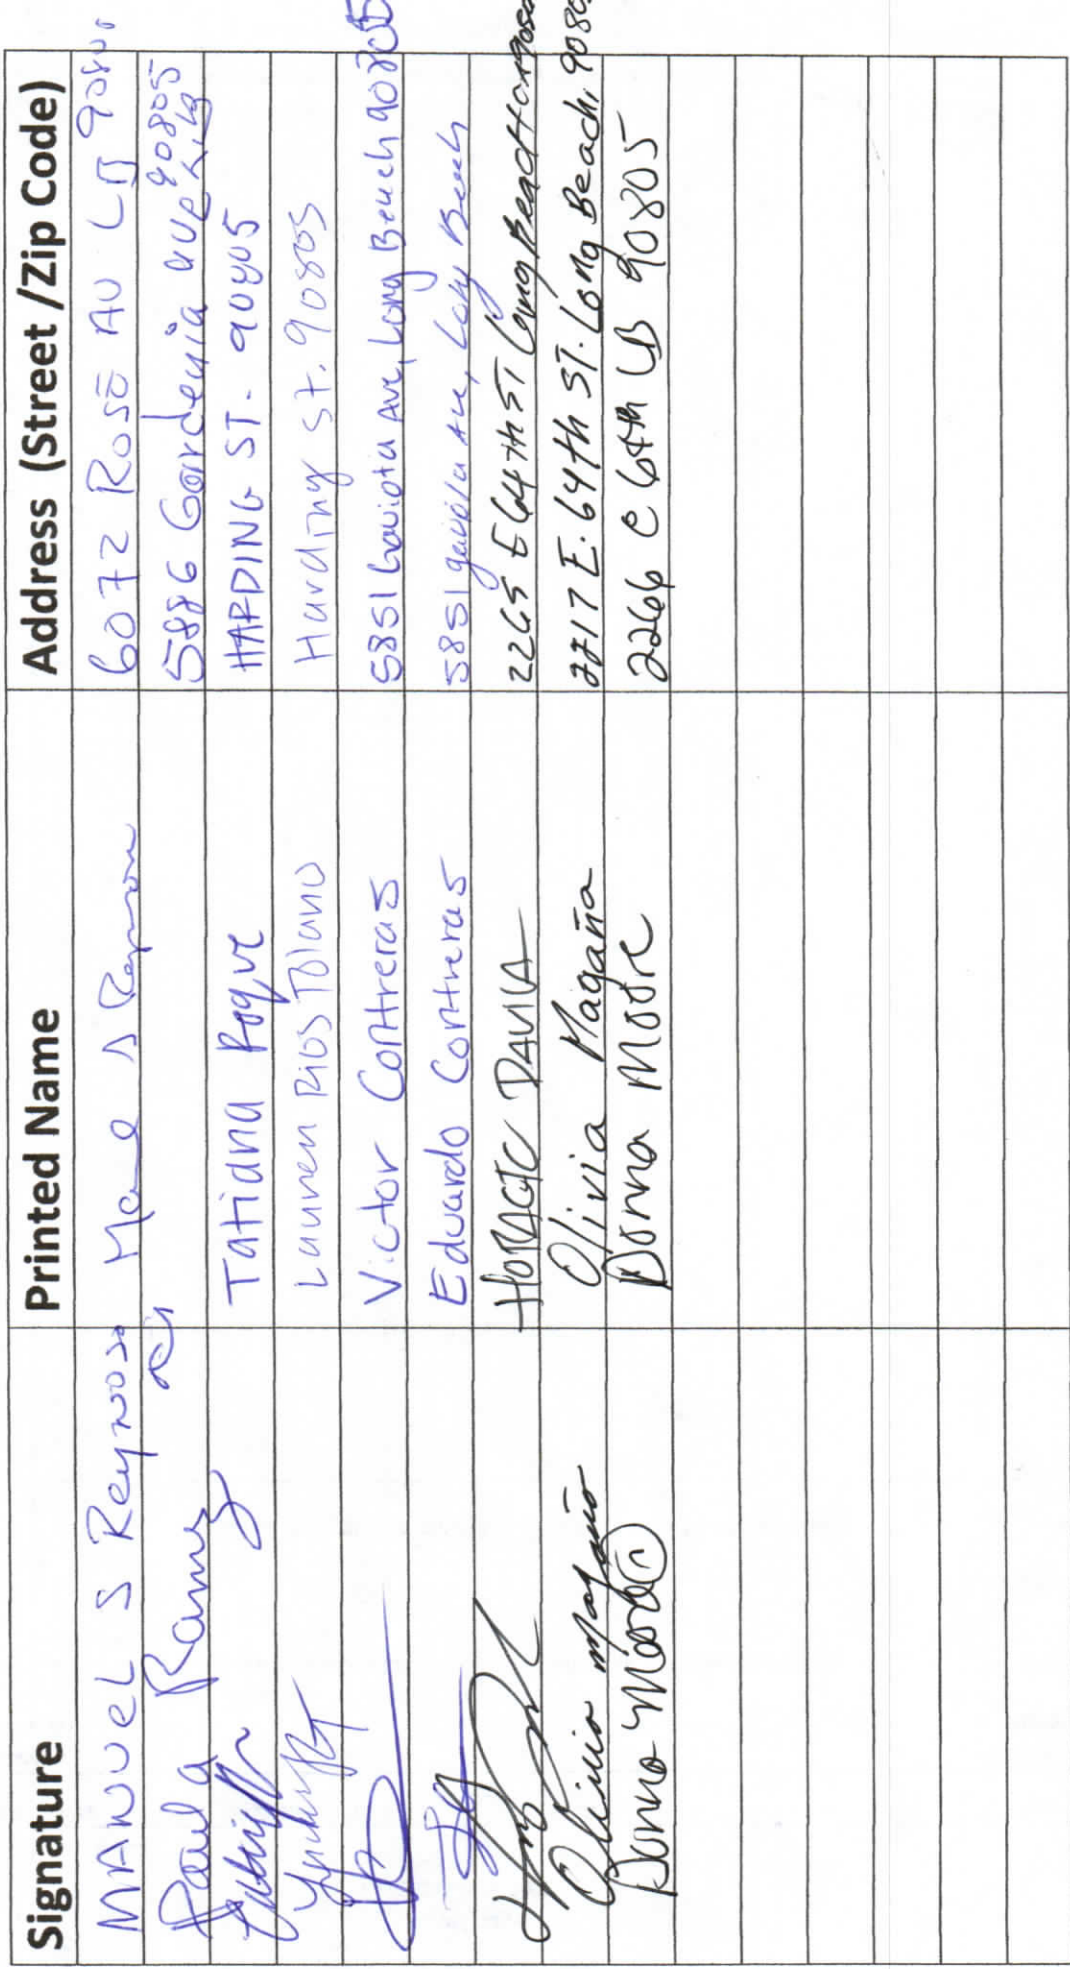 Signature Printed Name Address (Street /Zip Code)
MANUEL S Reynoso 6072 ROSE AV LB
Paula 5886 Gardenia ave 90805
Tatiana Roque HARDING ST. 90805
Lauren Rios Tolano Harding St. 90805
Victor Contreras 5851 Gaviota Ave, Long Beach 90805
Eduardo Contreras 5851 gaviota Ave, Long Beach
HORACIO DAVILA 2265 E 64th ST Long Beach
Olivia Magaña Olivia Magaña 2217 E. 64th ST. Long Beach.
Donna Moore Donna Moore 2266 E 64th LB 90805